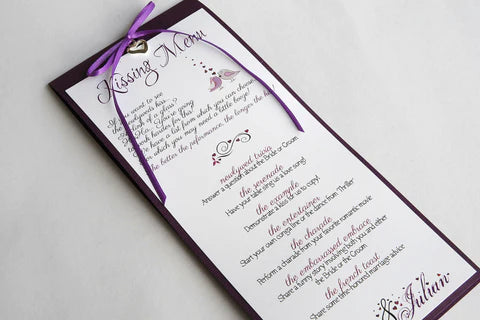 Kissing Menu
If you want to see
the newlyweds kiss,
the clink of a glass?
Ha! You're going
to work harder for this!
We have a list from which you can choose,
from which you may need a little booze!
the better the peformance, the longer the
newlywed trivia
Answer a question about the Bride or Groom
the serenade
Have your table sing us a love song!
the example
Demonstrate a kiss for us to copy!
the entertainer
Start your own conga line or the dance from "Thriller"
the charade
Perform a charade from your favorite romantic movie
the embarrassed embrace
Share a funny story involving both you and either
the Bride or the Groom
the french toast
Share some time-honored marriage advice
& Julian